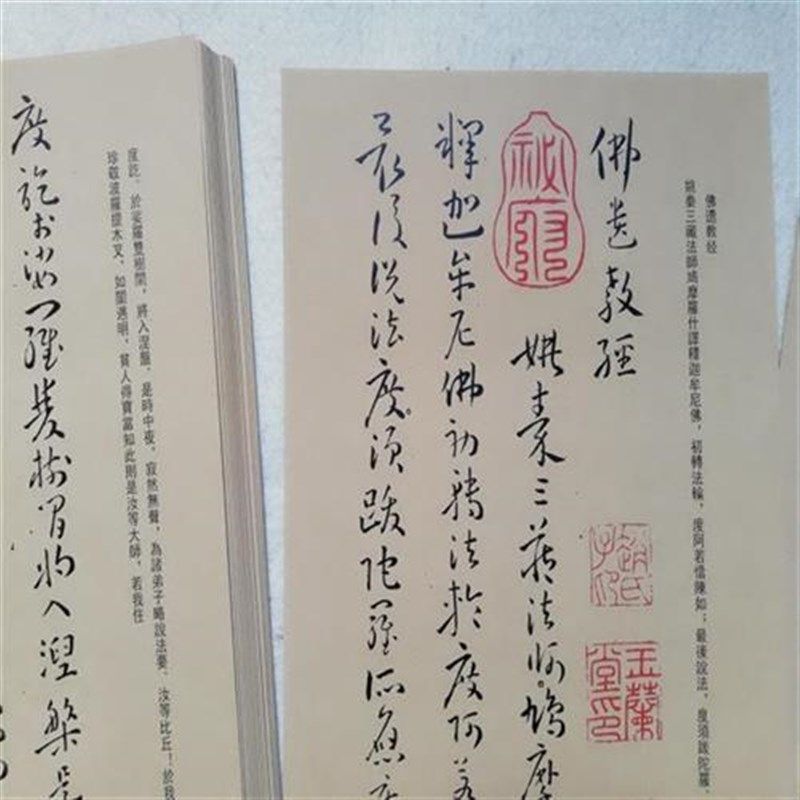 佛遺教经
姚秦三藏法師鳩摩羅什譯釋迦牟尼佛，初轉法輪，度阿若憍陳如；最後說法，度須跋陀羅，
佛遺教經
姚秦三藏法師鳩摩
趙氏子印
玉蘭堂印
祕府
釋迦牟尼佛初轉法輪度阿若
最後說法度須跋陀羅所應度
度訖，於娑羅雙樹間，將入涅盤，是時中夜，寂然無聲，為諸弟子略說法要，汝等比丘！於我
珍敬波羅提木叉，如闇遇明，貧人得寶當知此則是汝等大師，若我住
度訖於娑羅雙樹間將入涅槃是